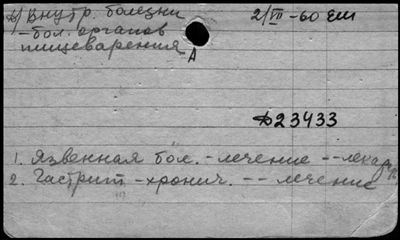 в) Внутр. болезни
2/VII-60 ЕШ
-бол. органов
пищеварения
А
Д23433
1. Язвенная бол. - лечение -- лекар
2. Гастрит - хронич. -- лечение